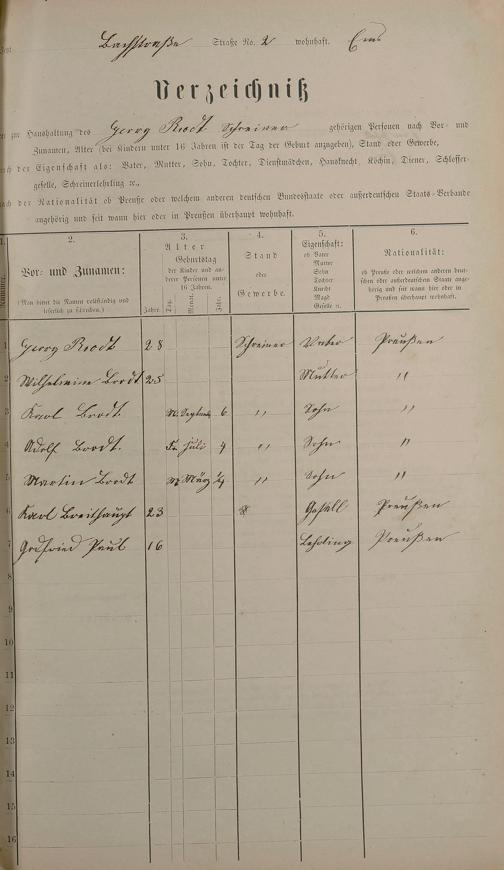 Bachstraße Straße No. 2 wohnhaft. Ems
Verzeichniß
zur Haushaltung des Georg Brodt Schreiner gehörigen Personen nach Vor- und
Zunamen, Alter (bei Kindern unter 16 Jahren ist der Tag der Geburt angegeben), Stand oder Gewerbe,
nach der Eigenschaft als: Vater, Mutter, Sohn, Tochter, Dienstmädchen, Hausknecht, Köchin, Diener, Schlosser-
geselle, Schreinerlehrling ꝛc.,
nach der Nationalität ob Preuße oder welchem anderen deutschen Bundesstaate oder außerdeutschen Staats-Verbande
angehörig und seit wann hier oder in Preußen überhaupt wohnhaft.
1. 2. 3. 4. 5. 6.
Nummer.
Vor- und Zunamen:
(Man bittet die Namen vollständig und
leserlich zu schreiben.)
Alter
Geburtstag
der Kinder und an-
derer Personen unter
16 Jahren.
Jahre. Tag. Monat. Jahr.
Stand
oder
Gewerbe.
Eigenschaft:
ob Vater
Mutter
Sohn
Tochter
Knecht
Magd
Geselle ꝛc.
Nationalität:
ob Preuße oder welchem anderen deut-
schen oder außerdeutschen Staate ange-
hörig und seit wann hier oder in
Preußen überhaupt wohnhaft.
1 Georg Brodt 28 Schreiner Vater Preußen
2 Wilhelmine Brodt 25 Mutter "
3 Karl Brodt September 6 " Sohn "
4 Adolf Brodt. Juli 4 " Sohn "
5 Martin Brodt März " Sohn "
6 Karl Breithaupt 23 Gesell Preußen
7 Gottfried Paul 16 Lehrling Preußen
8
9
10
11
12
13
14
15
16